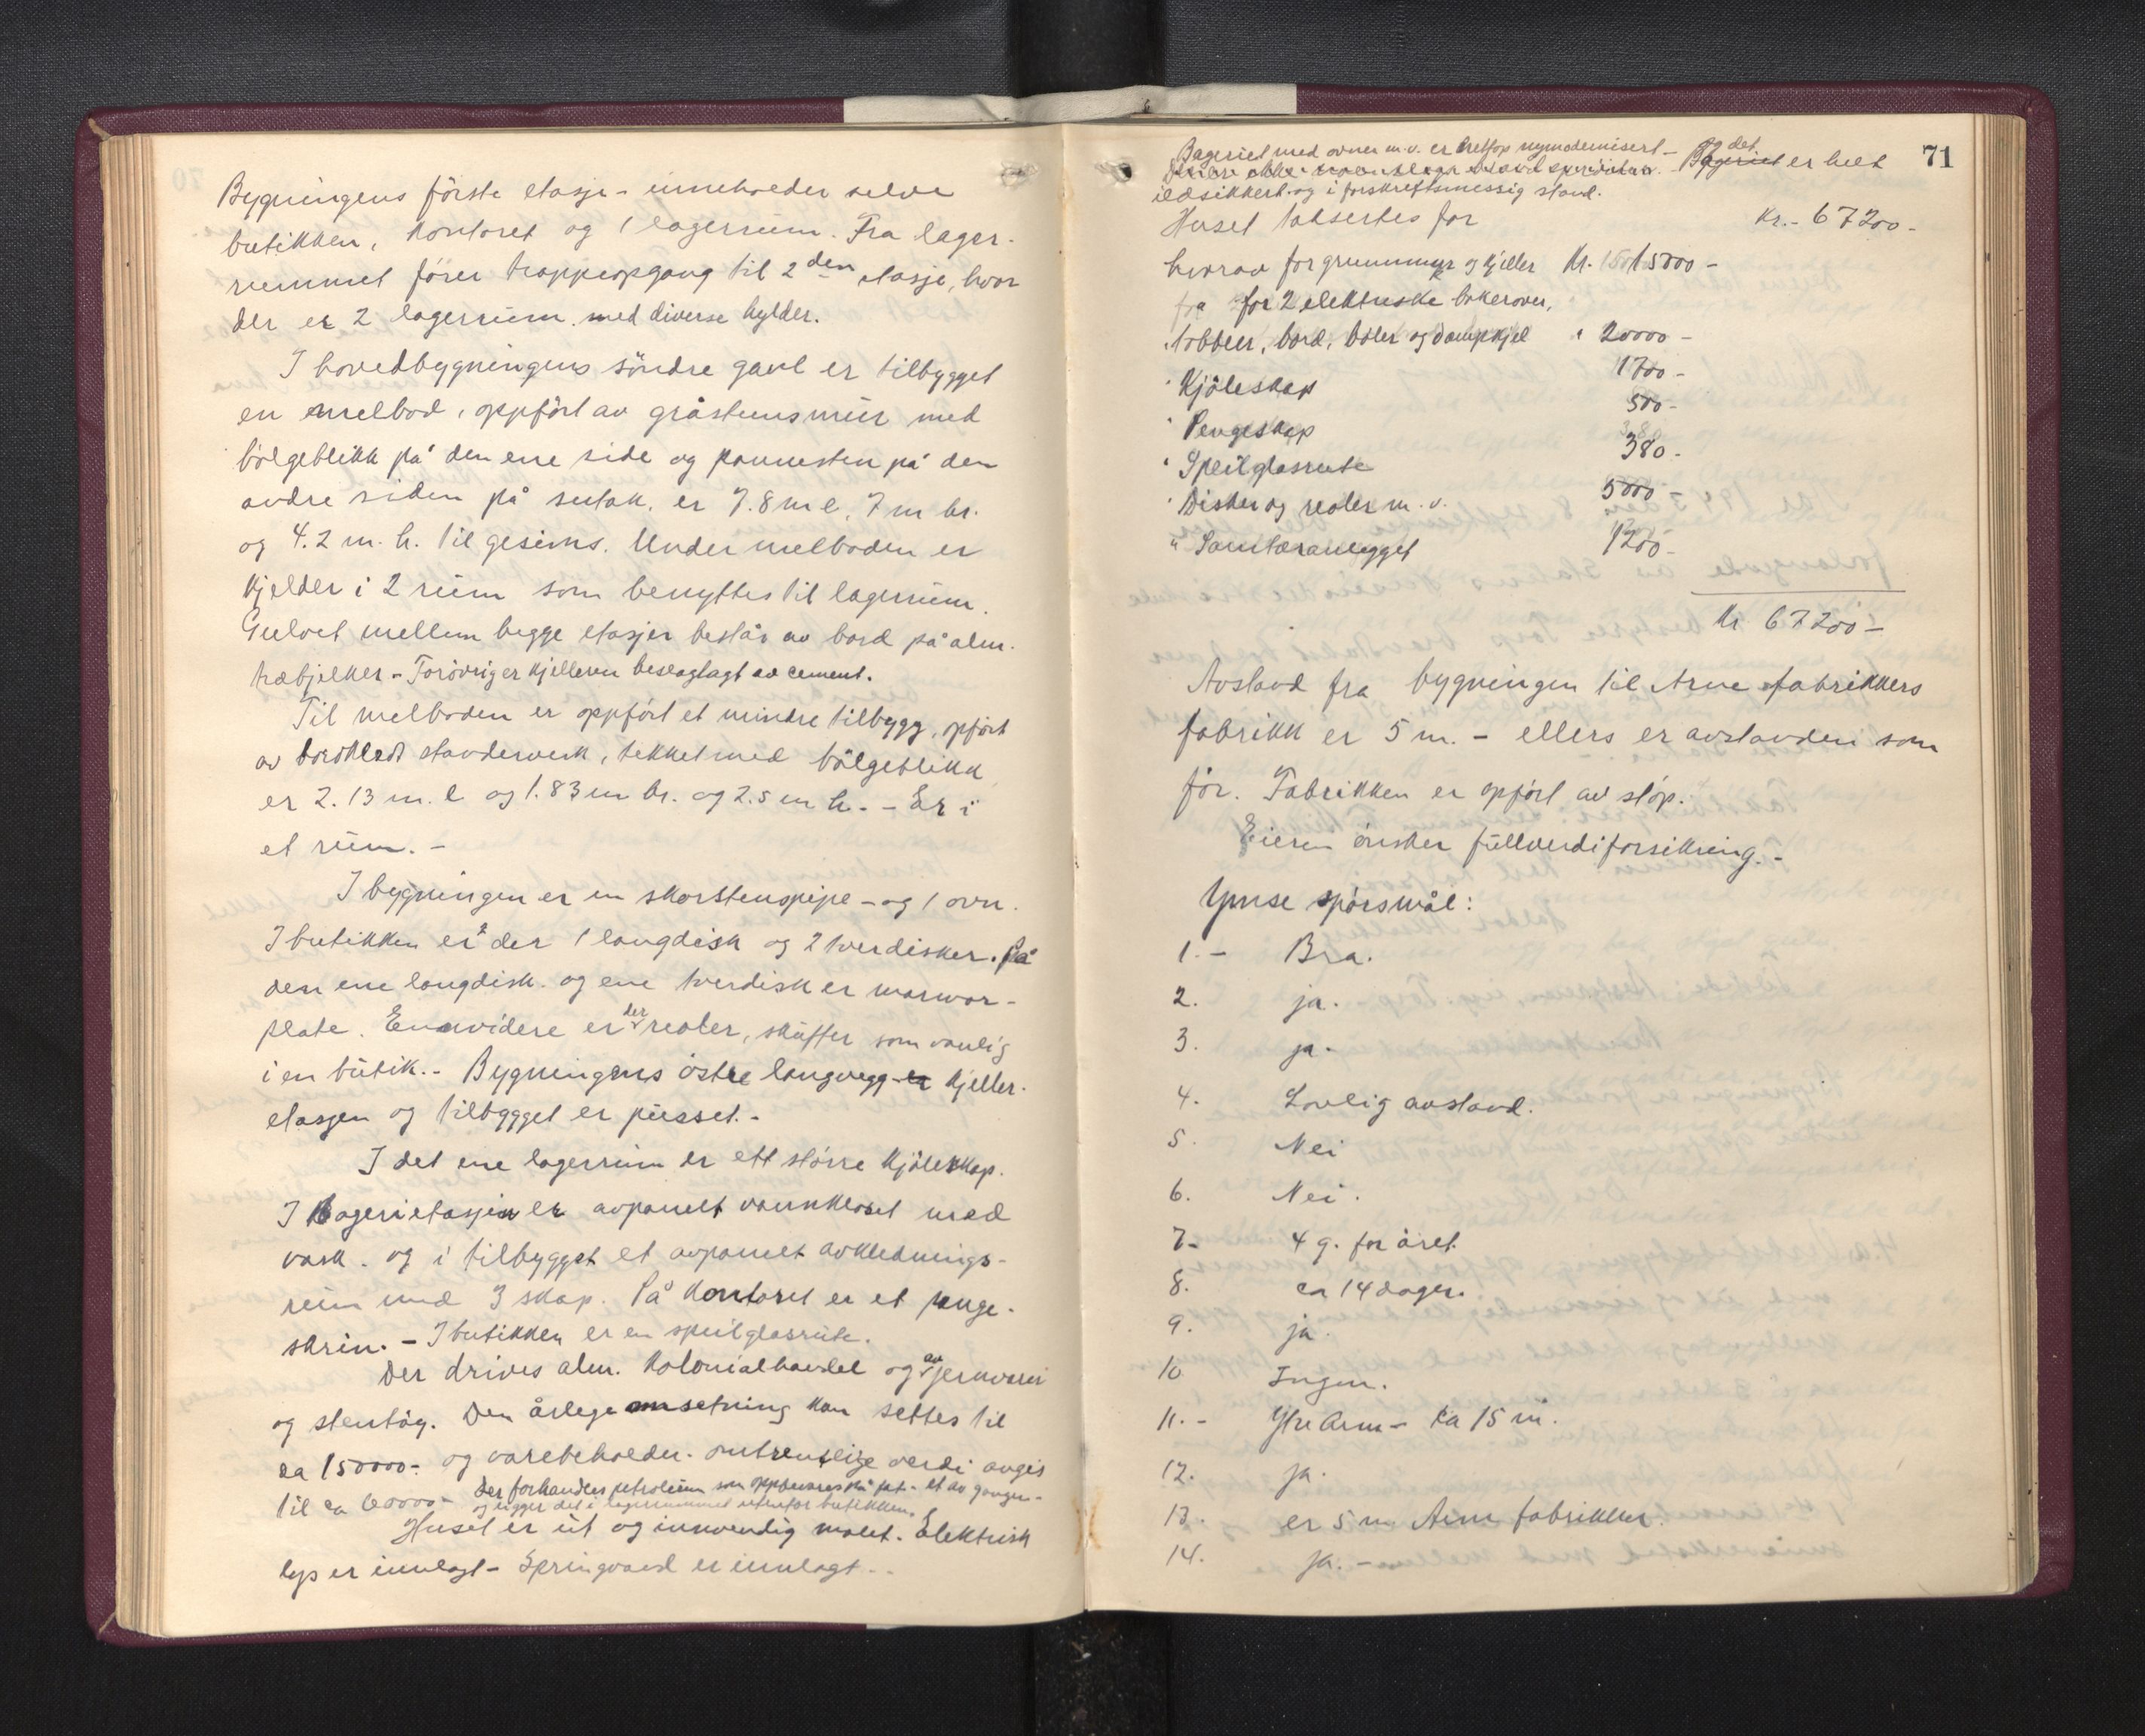 Bygningens förste etasje - inneholder selve
butikken, kontoret og 1 lagerrum. Fra lager-
rummet förer trappeopgang til 2den etasje, hvor
der er 2 lagerrum. med diverse hylder.
I hovedbygningens söndre gavl er tilbygget
en melbod, oppfört av gråstensmur med
bölgeblikk på den ene side og pannesten på den
andre siden på sutak. er 7.8 m l. 7 m br.
og 4.2 m. h. til gesims. Under melboden er
kjelder i 2 rum som benyttes til lagerrum.
Gulvet mellem begge etasjer består av bord på alm.
træbjelker - Forövrig er kjelleren beslaglagt av cement.
Til melboden er oppfört et mindre tilbygg, opfört
av bordkledt stenderverk, tekket med bölgeblikk
er 2.13 m. l og 1.83 m br. og 2.5 m h. - Er i
et rum. -
I bygningen er en skorstenspipe - og 1 ovn.
I butikken er der 1 langdisk og 2 tverdisker. På
den ene langdisk. og ene tverdisk er marmor-
plate. Enn videre er der reoler, skuffer som vanlig
i en butik. - Bygningens östre langvegg er kjeller-
etasjen og tilbygget er pusset. -
I det ene lagerrum er ett större kjöleskap.
I Bagerietasjen er avpanelt vannkloset med
vask. og i tilbygget et avpanelt avklednings-
rum med 3 skap. På kontoret er et penge-
skrin. - I butikken er en speilglasrute.
Der drives alm. kolonialhandel og av jernvarer
og stentöy. Den årlege omsetning kan settes til
ca 150000- og varebeholdn. omtrentlige verdi angis
til ca 60000- Der forhandles petroleum som oppbevares på fat - et av gangen -
og ligger det i lagerrummet utenfor butikken.
Huset er ut og innvendig malet. Elektrisk
lys er innlagt - Springvand er innlagt - .
71
Bageriet med ovner m.v. er netop nymodernisert - og det Bageriet er helt
ildsikkert og i forskriftsmessig stand.
Huset takseres for Kr. - 67200 -
hvorav for grunnmur og kjeller Kr. 15000 -
for 2 elektriske bakerovn,
bord, boler og dampkjel " 20000 -
" Kjöleskap 1700 -
" Pengeskap 500 -
" Speilglasrute 380 -
" Disker og reoler m. v. 5000 -
" Sanitæranlegget 1200 -
Kr 67200 -
Avstand fra bygningen til Arne fabrikkers
fabrikk er 5 m. - ellers er avstanden som
för. Fabrikken er opfört av stöp.
Eieren önsker fullverdiforsikring. -
Ymse spörsmål:
1. - Bra.
2. ja.
3. ja.
4. Lovlig avstand.
5. Nei
6. Nei.
7 - 4 g. for året.
8. ca 14 dager.
9. ja.
10 Ingen.
11. - Ytre Arna - ca 15 m.
12. ja.
13. er 5 m Arne fabrikker.
14. ja. -